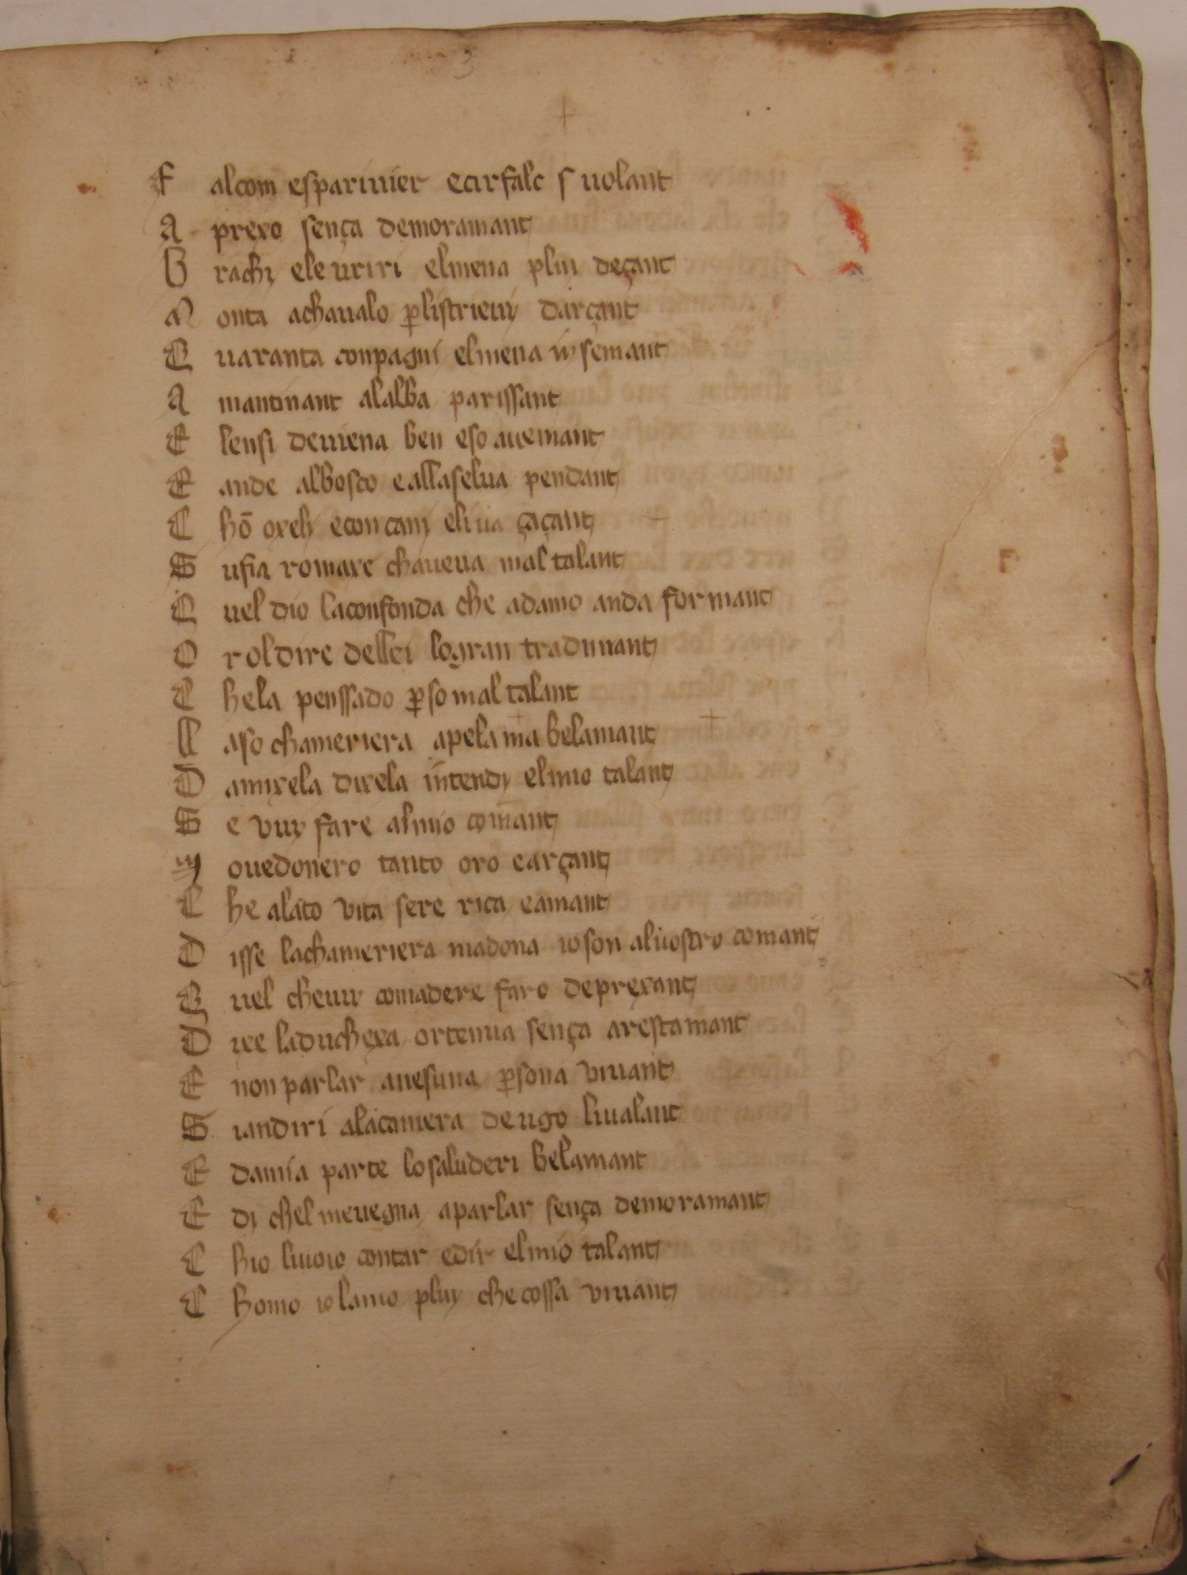 3
F alcom esparivier ecirfalc s volant
A prexo sença demoramant
B rachi eleuriri elmena plui deçant
M onta achaualo ꝑlistrieuy darçant
Q uaranta conpagni elmena in semant
A mantinant alalba parissant
E lensi deuiena ben eso auemant
E ande albosco eallaselua pendant
C hō oreli econ cani eliua çaçant
S ufia romaxe chaueua mal talant
Q uel dio laconfonda che adamo anda formant
O r oldire dellei logran tradimant
C hela penssado ꝑso mal talant
L aso chameriera apelamia belamant
D amixela dixela intendy elmio talant
S e vuy fare almio comant
Y ouedonero tanto oro earçant
C he alato vita sere rica eamant
D isse lachameriera madona ioson aluostro comant
Q uel cheuuy comadere faro deprexant
D ixe laduchexa ortenua sença arestamant
E non parlar anesuna ꝑsona viuant
S iandiri alacamera deugo liualant
E damia parte losaluderi belamant
E di chel meuegna aparlar sença demoramant
C hio liuoio contar edir elmio talant
C homo iolamo pluy checossa viuant